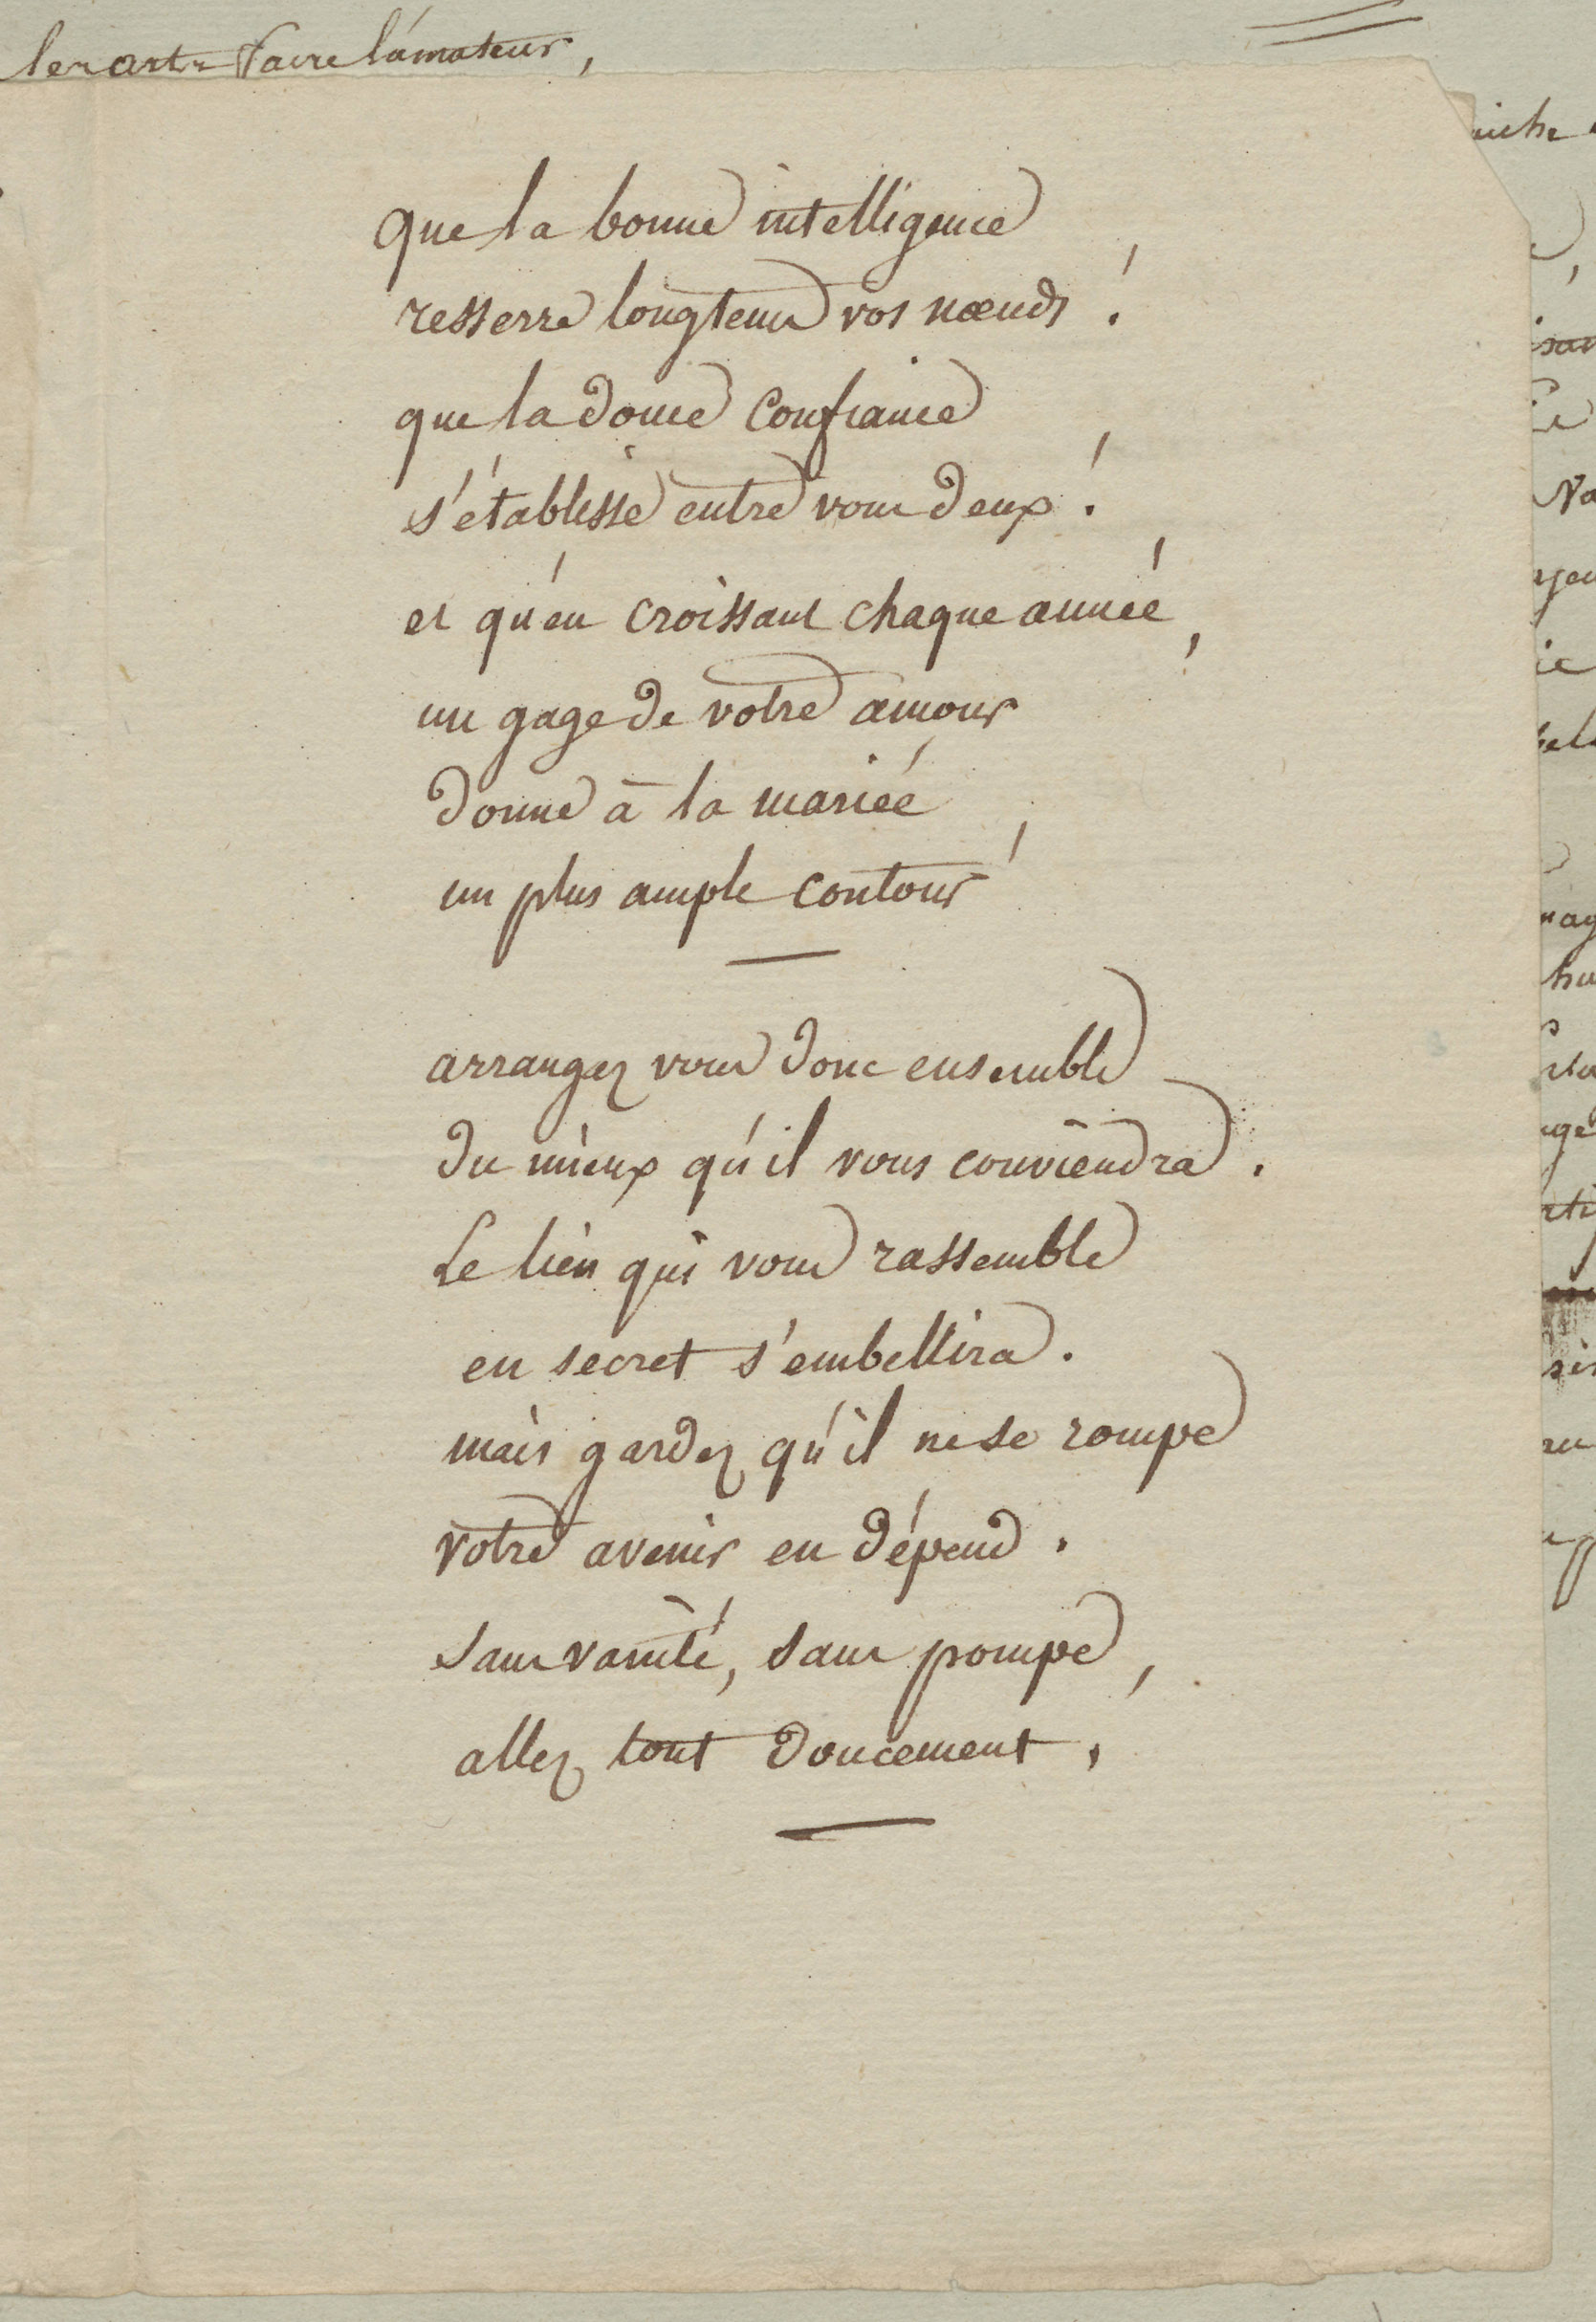 les arts faire l'amateur,
que la bonne intelligence
resserre longtems vos nœuds !
que la douce confiance
s'établisse entre vous deux !
et qu'en croissant chaque année,
un gage de votre amour
donne à la mariée
un plus ample contour !
arrangez vous donc ensemble
du mieux qu'il vous conviendra.
Le lien qui vous rassemble
en secret s'embellira.
mais gardez qu'il ne se rompe
votre avenir en dépend.
sans vanité, sans pompe,
allez tout doucement.